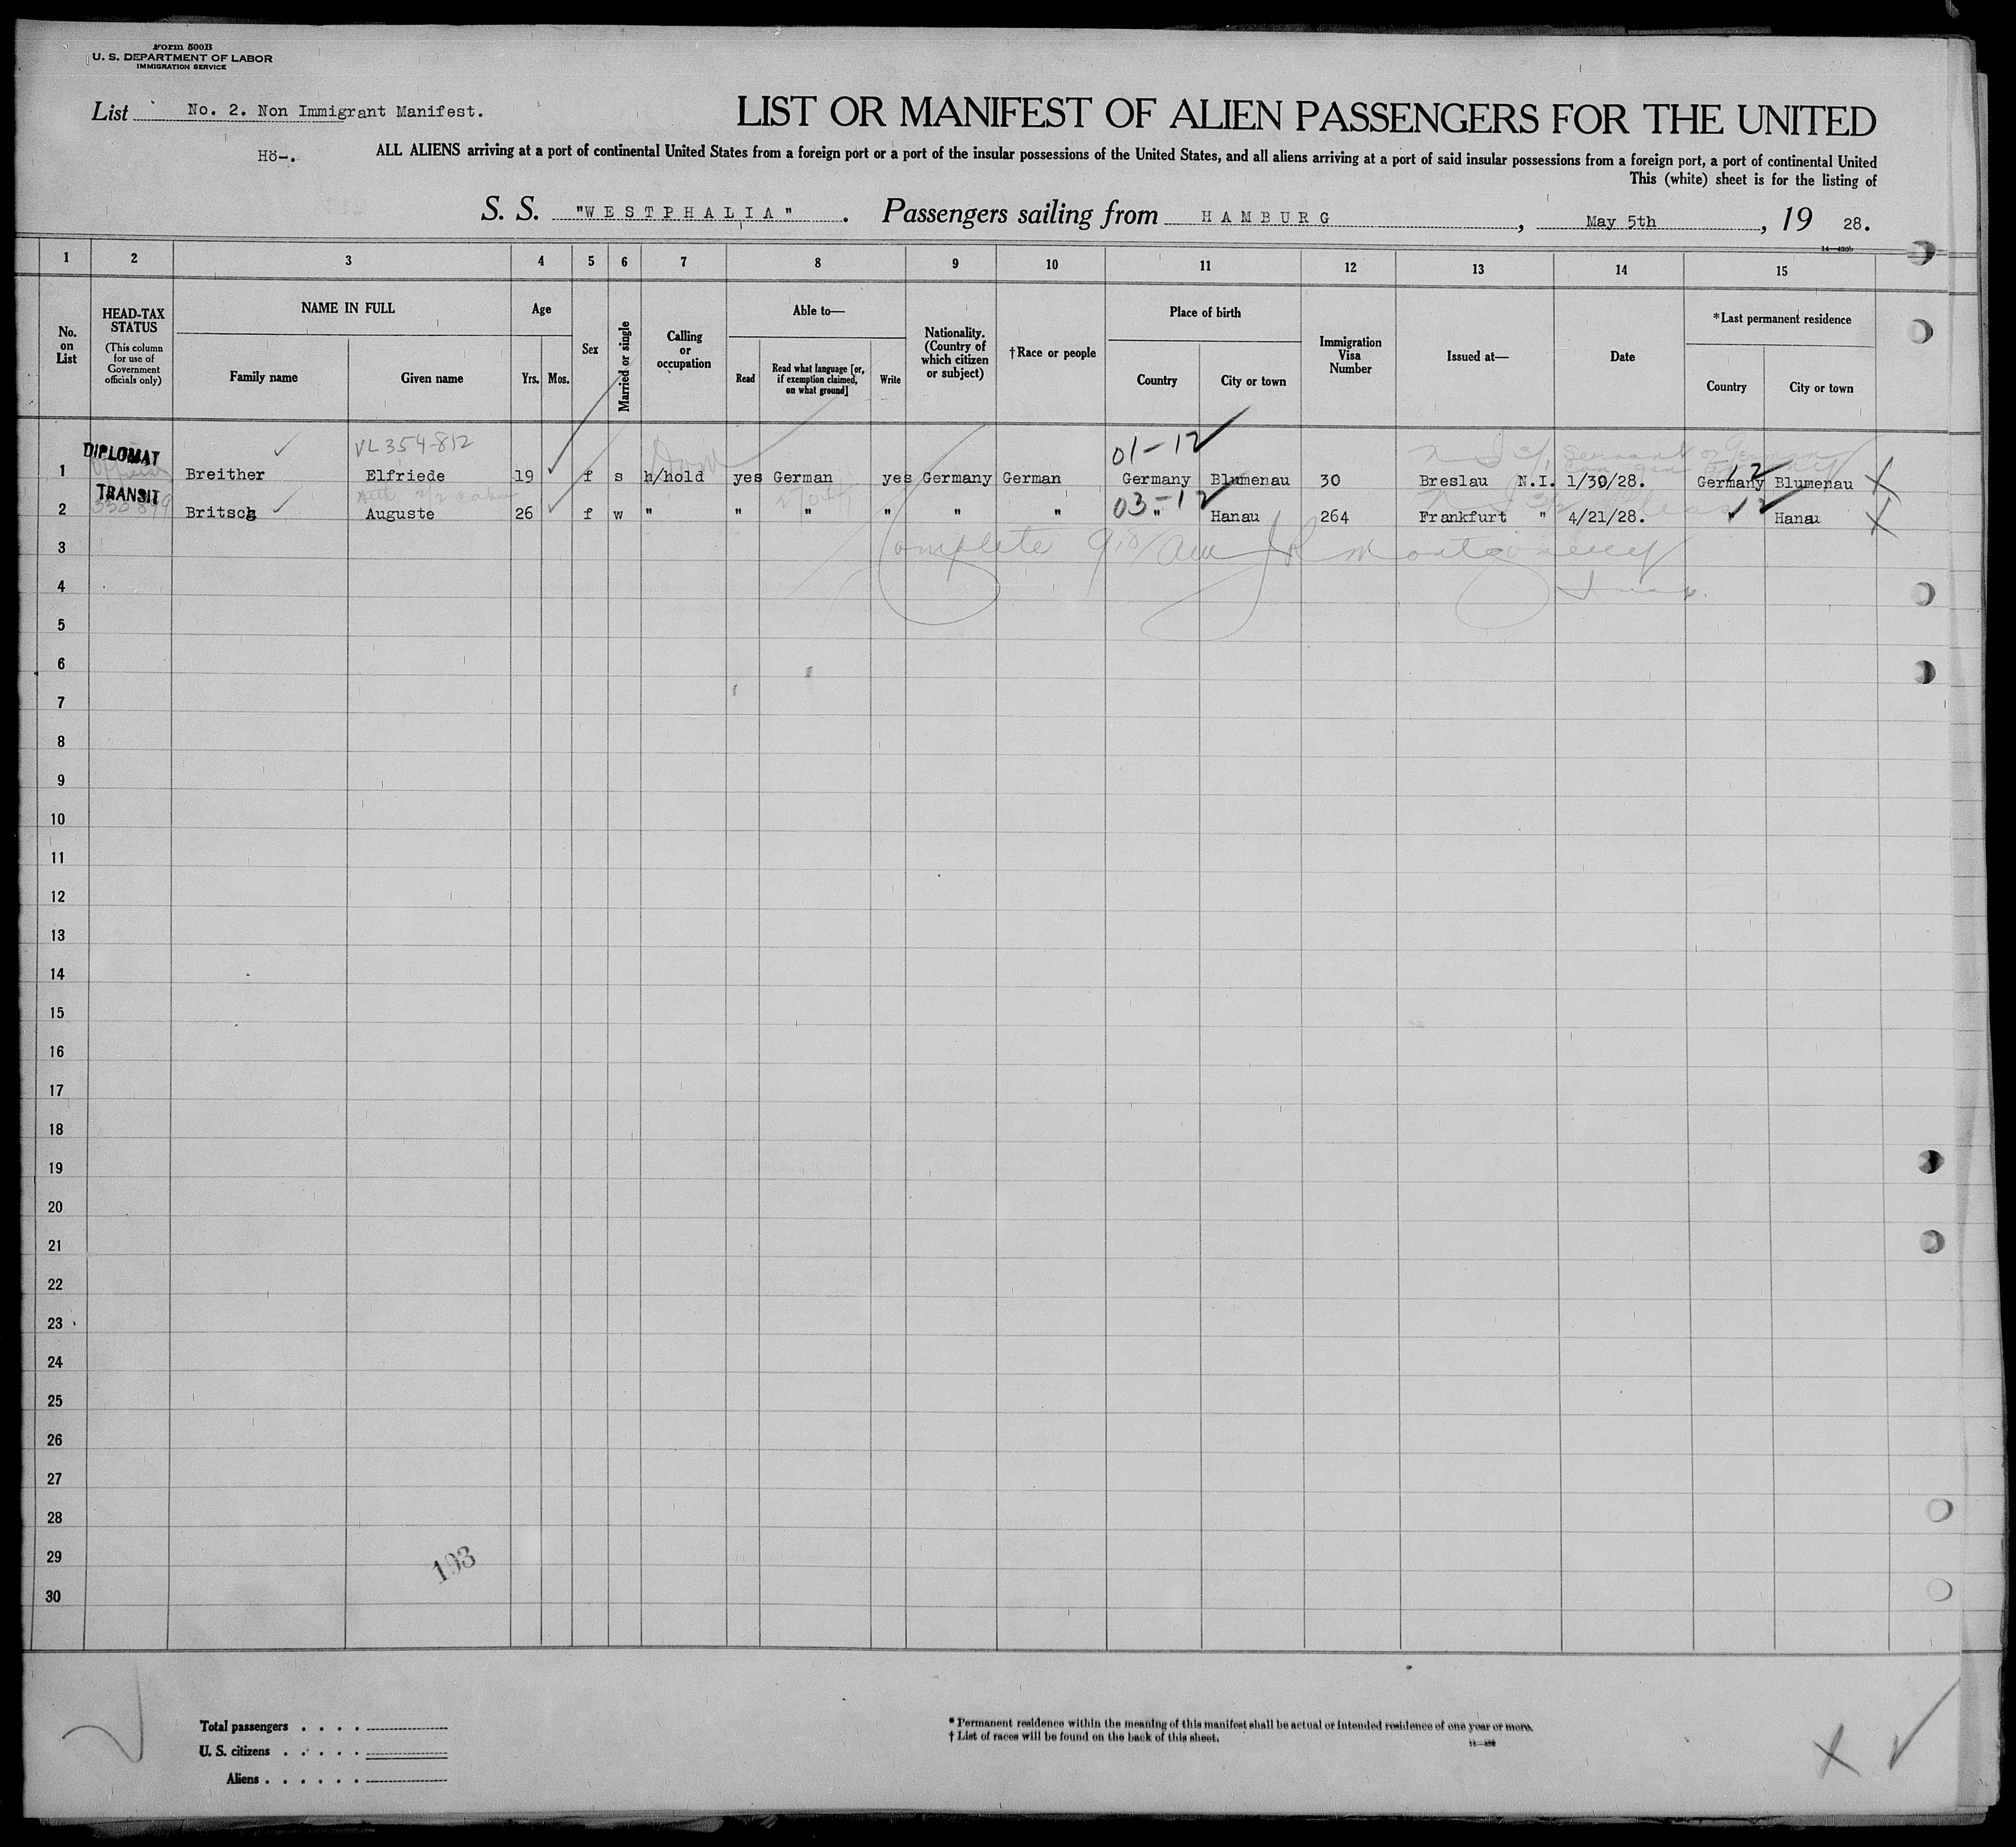 Form 500B
U. S. DEPARTMENT OF LABOR
IMMIGRATION SERVICE
List No. 2. Non Immigrant Manifest.
LIST OR MANIFEST OF ALIEN PASSENGERS FOR THE UNITED
Hö-.
ALL ALIENS arriving at a port of continental United States from a foreign port or a port of the insular possessions of the United States, and all aliens arriving at a port of said insular possessions from a foreign port, a port of continental United
This (white) sheet is for the listing of
S. S. "WESTPHALIA". Passengers sailing from HAMBURG, May 5th, 19 28.
1 2 3 4 5 6 7 8 9 10 11 12 13 14 15
No. on List
HEAD-TAX STATUS
(This column for use of Government officials only)
NAME IN FULL
Family name
Given name
Age
Yrs. Mos.
Sex
Married or single
Calling or occupation
Able to—
Read
Read what language [or, if exemption claimed, on what ground]
Write
Nationality. (Country of which citizen or subject)
†Race or people
Place of birth
Country
City or town
Immigration Visa Number
Issued at—
Date
*Last permanent residence
Country
City or town
DIPLOMAT VL354-812 01-12
1 Breither Elfriede 19 f s h/hold yes German yes Germany German Germany Blumenau 30 Breslau N.I. 1/30/28. Germany Blumenau X
TRANSIT 03-12 12
2 Britsch Auguste 26 f w " " " " " " " Hanau 264 Frankfurt " 4/21/28. " Hanau X
3 Complete Montgomery
4
5
6
7
8
9
10
11
12
13
14
15
16
17
18
19
20
21
22
23
24
25
26
27
28
29
30
193
Total passengers
U. S. citizens
Aliens
* Permanent residence within the meaning of this manifest shall be actual or intended residence of one year or more.
† List of races will be found on the back of this sheet.